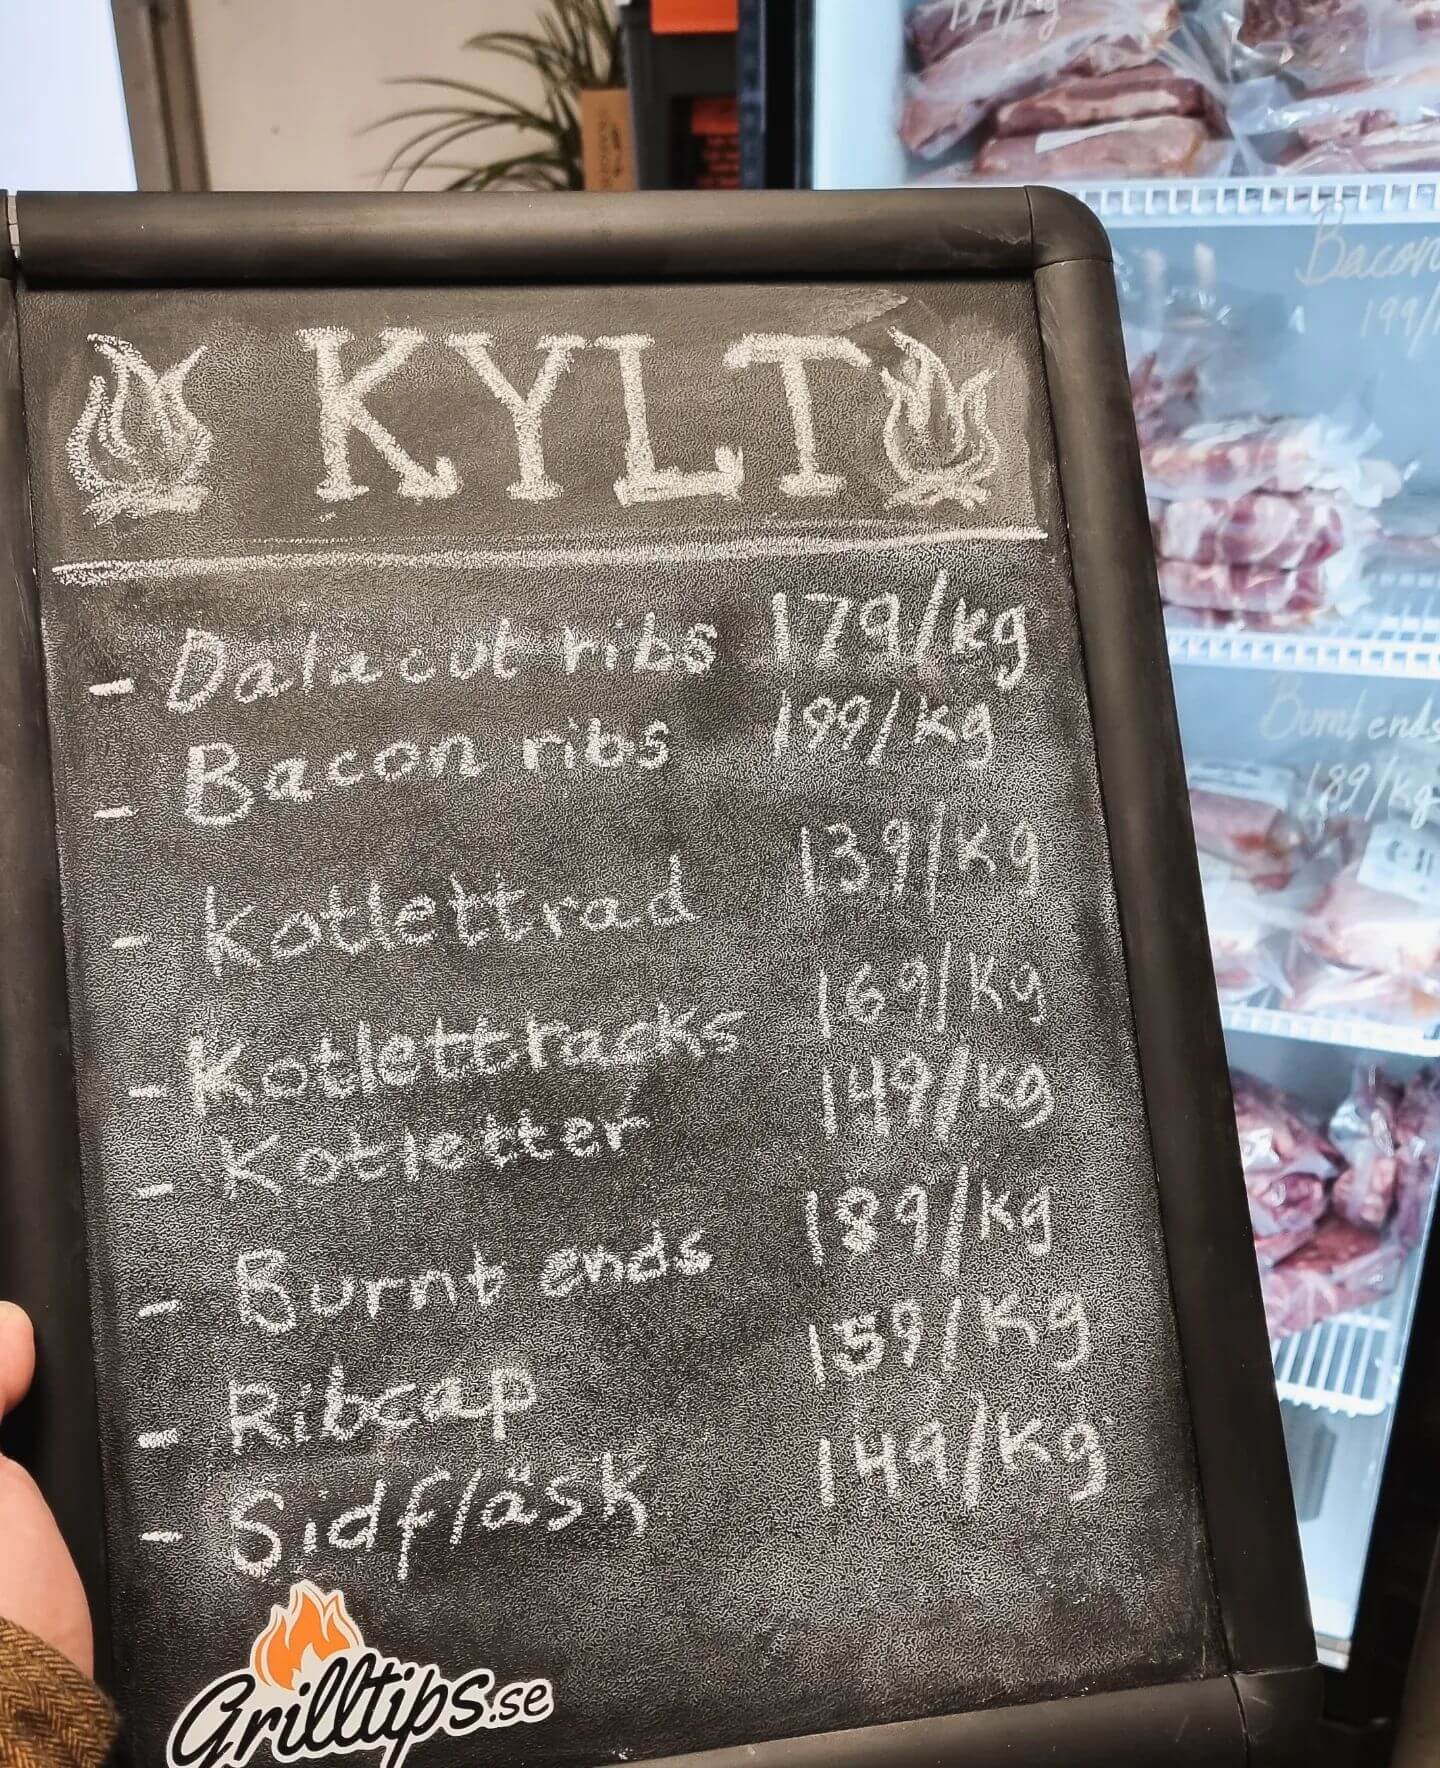 KYLT
- Dalacut ribs 179/kg
- Bacon ribs 199/kg
- Kotlettrad 139/kg
- Kotlettracks 169/kg
- Kotletter 149/kg
- Burnt ends 189/kg
- Ribcap 159/kg
- Sidfläsk 149/kg
Grilltips.se
Bacon
199/
Burnt ends
189/kg